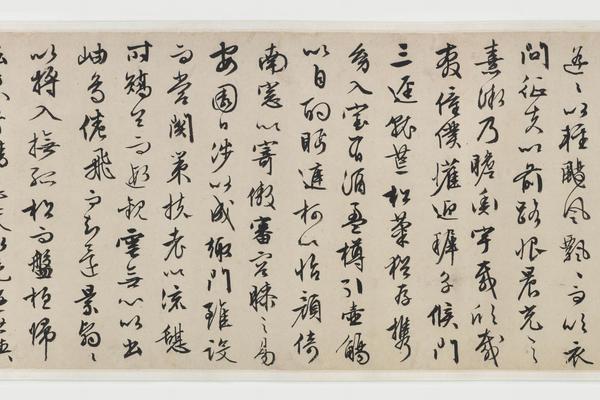 遙〻以輕颺風飄〻而吹衣
問征夫以前路恨晨光之
熹微乃瞻衡宇載欣載
奔僮僕歡迎稚子候門
三逕就荒松菊猶存攜
幼入室有酒盈樽引壺觴
以自酌眄庭柯以怡顏倚
南窻以寄傲審容膝之易
安園日涉以成趣門雖設
而常關策扶老以流憩
時矯首而遐觀雲無心以出
岫鳥倦飛而知還景翳〻
以將入撫孤松而盤桓歸